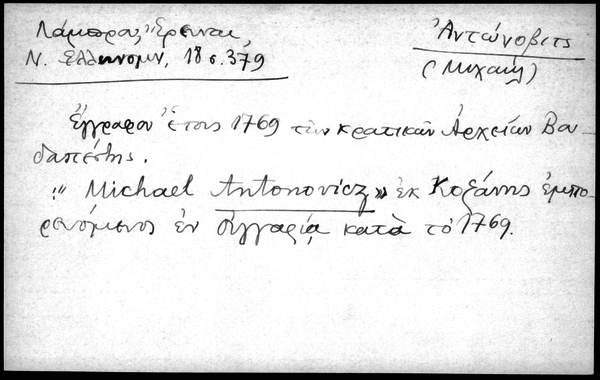 Λάμπρου, Ἔρευναι,
Ν. Ἑλληνομν, 18 σ. 379
Ἀντώνοβιτς
(Μιχαήλ)
Ἔγγραφον ἔτους 1769 τῶν κρατικῶν Ἀρχείων Βου-
δαπέστης.
"Michael Antonovicz" ἐκ Κοζάνης ἐμπο-
ρευόμενος ἐν Οὑγγαρίᾳ κατὰ τὸ 1769.